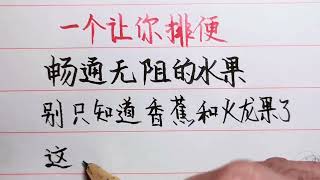 一个让你排便
畅通无阻的水果
别只知道香蕉和火龙果了
这